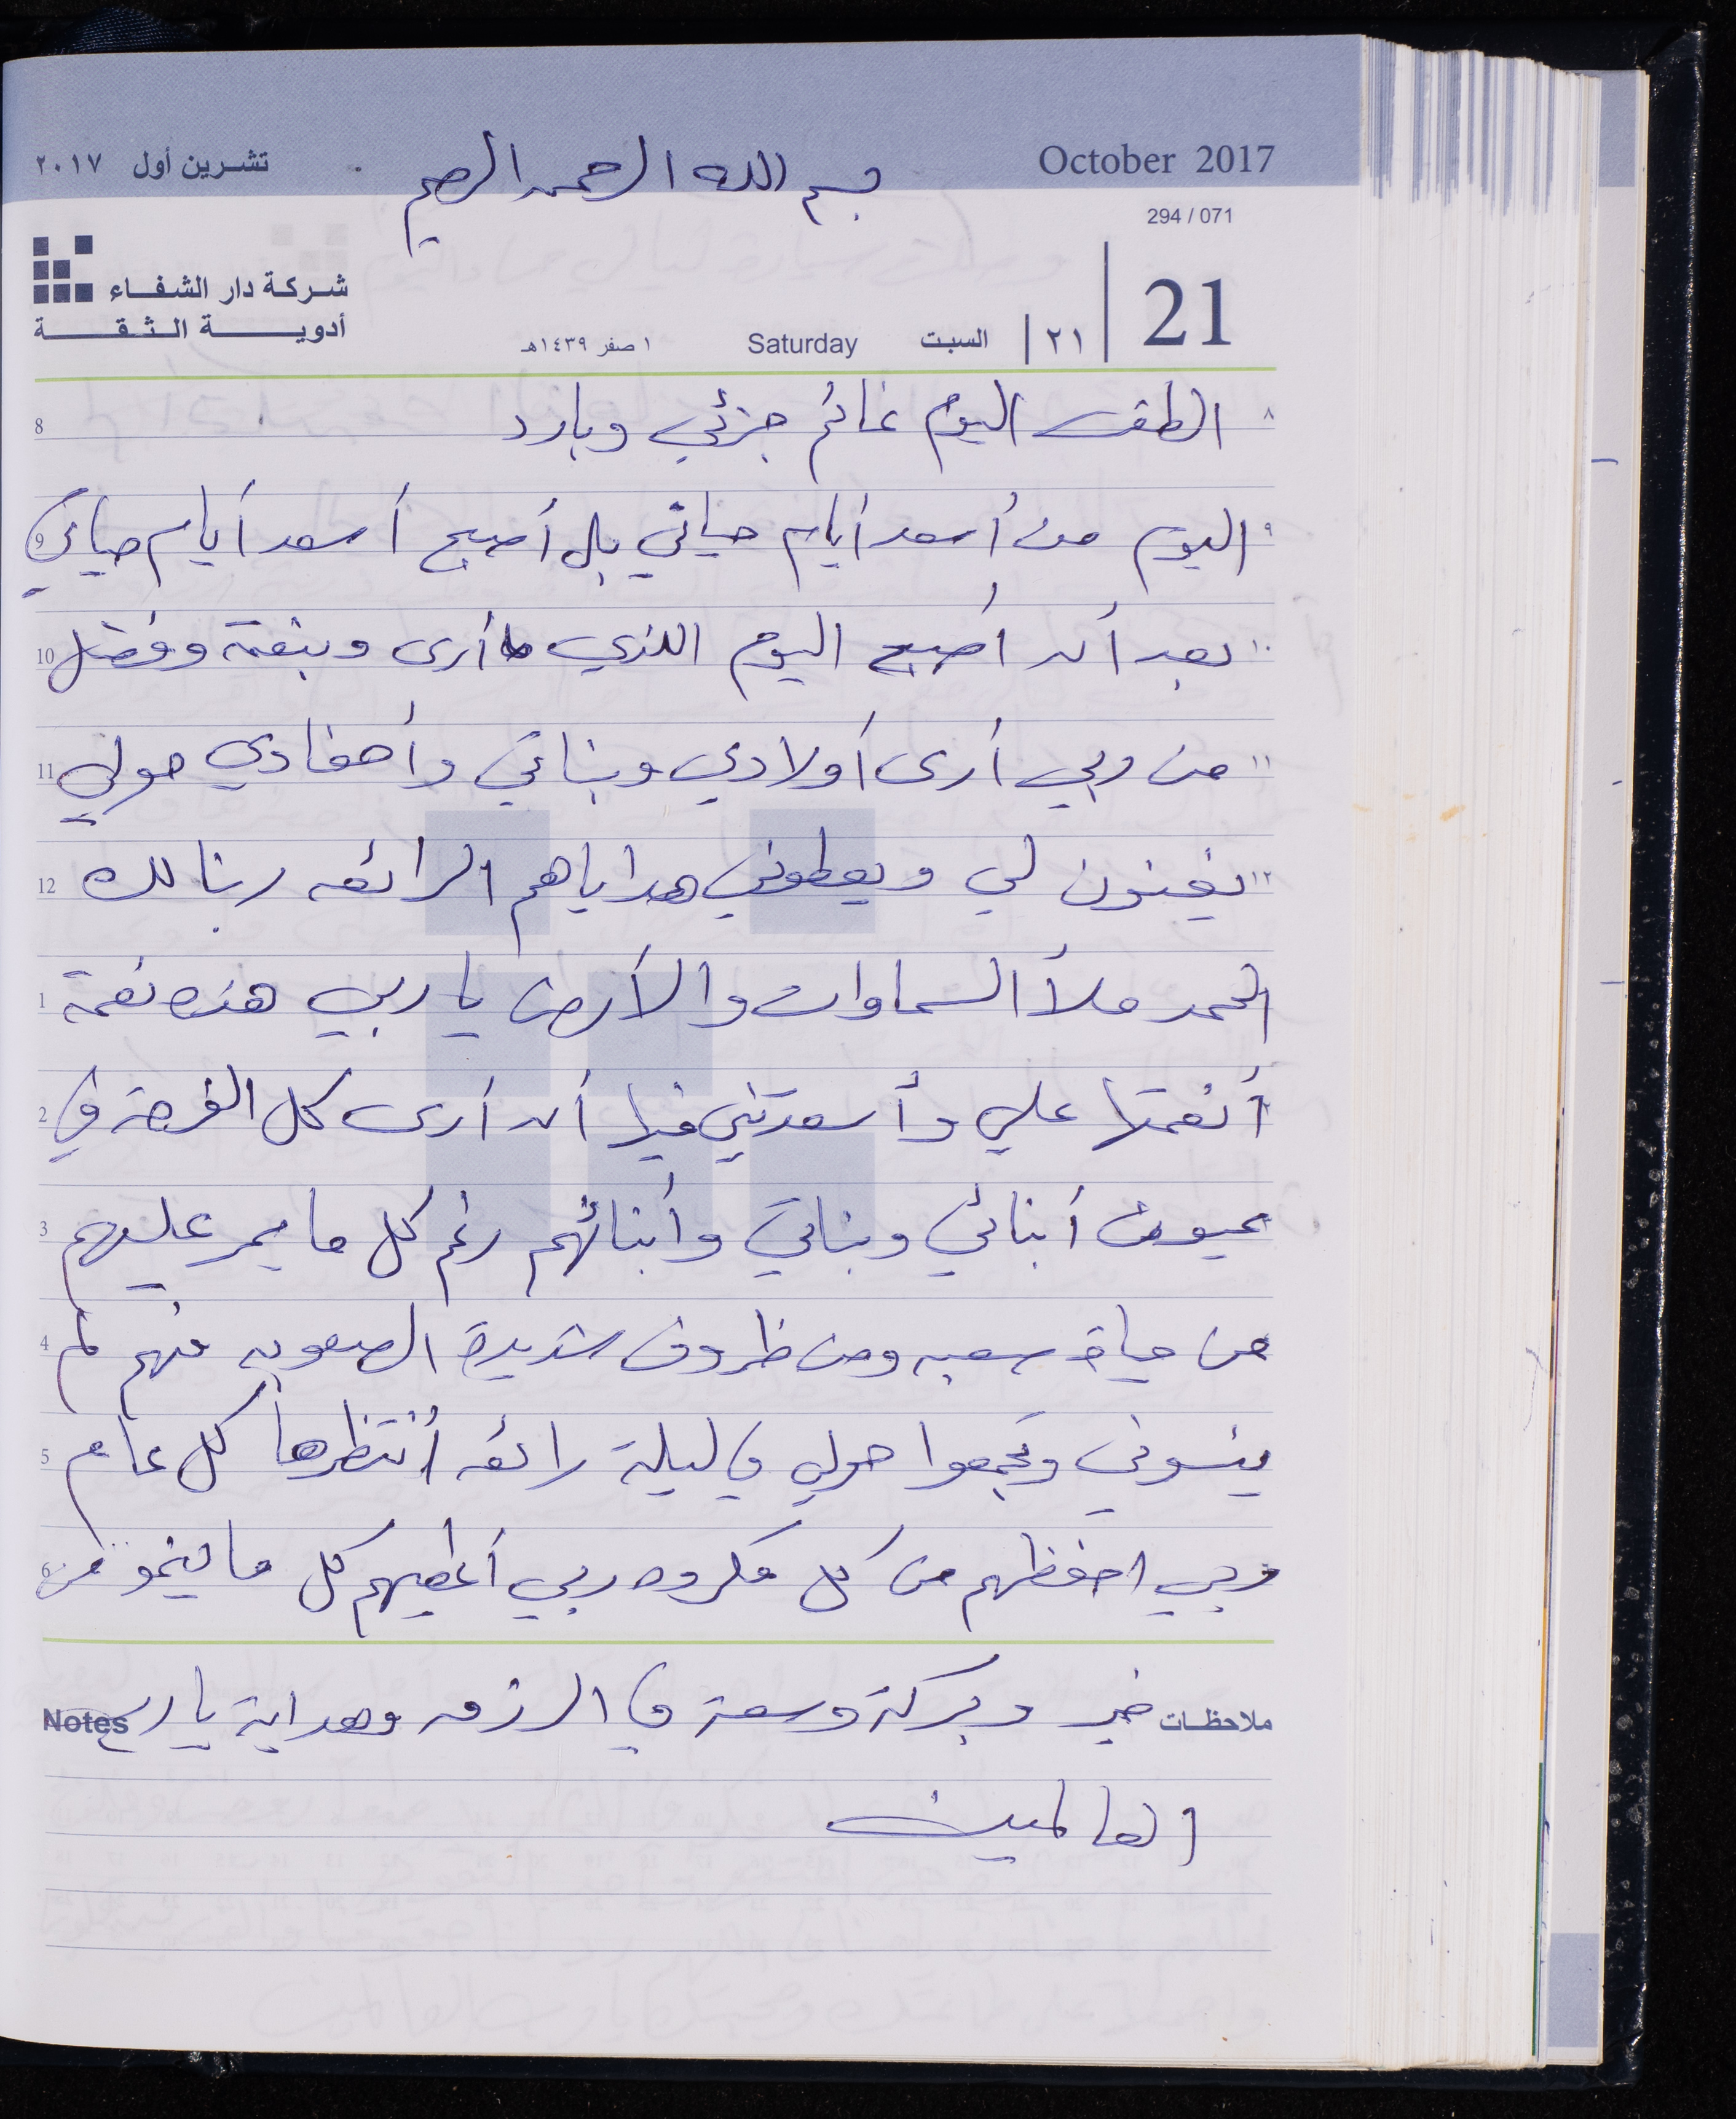 October 2017
بسم الله الرحمن الرحيم
تشرين أول ٢٠١٧
294 / 071
21
٢١
السبت
Saturday
١ صفر ١٤٣٩هـ
شركة دار الشفاء
أدوية الثقة
٨ الطقس اليوم غائم جزئي وبارد 8
٩ اليوم من أسعد أيام حياتي بل أصبح أسعد أيام حياتي 9
١٠ بعد أن أصبح اليوم الذي أرى وبنعمة وفضل 10
١١ من ربي أرى أولادي وبناتي وأحفادي حولي 11
١٢ يغنون لي ويعطوني هداياهم الرائعه ربنا لك 12
الحمد ملأ السماوات والأرض يا ربي هذه نعمة 1
أنعمتها علي وأسعدتني فيها أن أرى كل الفرحة في 2
عيون أبنائي وبناتي وأبنائهم رغم كل ما يمر عليهم 3
من حياة صعبه ومن ظروف شديدة الصعوبه فهم لم 4
ينسوني وتجمعوا حولي في ليلة رائعه أنتظرها كل عام 5
ربي احفظهم من كل مكروه ربي أعطيهم كل ما يتمنو من 6
ملاحظات خير وبركة وسعة في الرزق وهداية يا رب Notes
العالمين